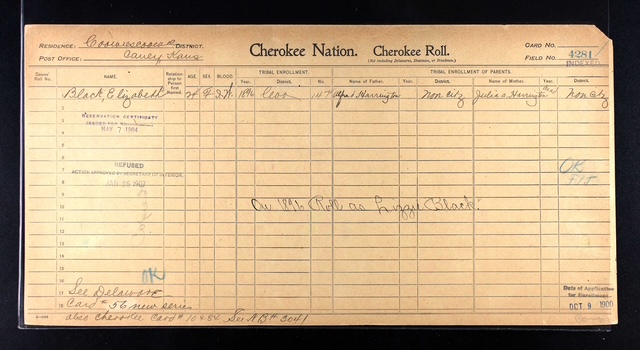 RESIDENCE: Cooweescoowee DISTRICT.
POST OFFICE: Caney Kans
Cherokee Nation. Cherokee Roll.
(Not Including Delawares, Shawnees, or Freedmen.)
CARD NO.
FIELD NO. 4281
INDEXED
Dawes' Roll No. NAME. Relationship to Person first Named. AGE. SEX. BLOOD. TRIBAL ENROLLMENT. TRIBAL ENROLLMENT OF PARENTS.
Year. District. No. Name of Father. Year. District. Name of Mother. Year. District.
1 Black, Elizabeth 24 F I.W. 1896 Coo Harrington Non Citz Julia A Harrington Non Citz
2
RESERVATION CERTIFICATE
ISSUED FOR NO.
MAY 7 1904
REFUSED
ACTION APPROVED BY SECRETARY OF INTERIOR.
JAN 16 1907
OK
On 1896 Roll as Lizzie Black.
OK
See Delaware
Card # 56 new series
also Cherokee Card # 10454 See N.B# 3041
Date of Application for Enrollment.
OCT 9 1900